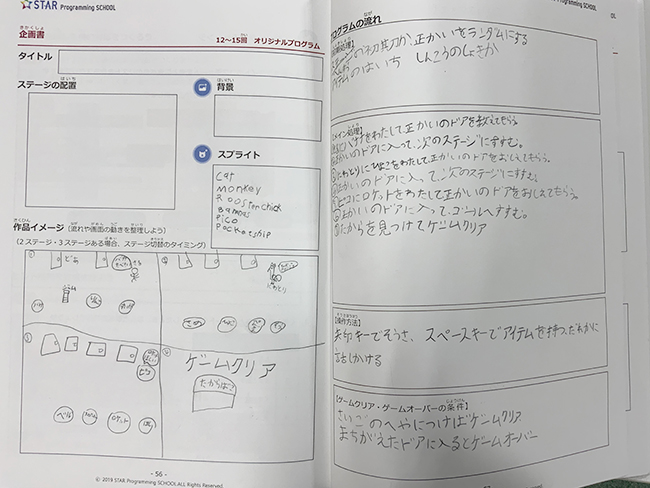 STAR Programming SCHOOL
企画書
きかくしょ
12〜15回 オリジナルプログラム
タイトル
ステージの配置
はいち
背景
はいけい
スプライト
Cat
monkey
Roosterchick
Bananas
Pico
Rocketship
作品イメージ (流れや画面の動きを整理しよう)
(2ステージ・3ステージある場合、ステージ切替のタイミング)
① どあ
さる
②
にわとり
③
ピコ
ロケット
④
ゲームクリア
たからばこ
- 56 -
© 2019 STAR Programming SCHOOL.All Rights Reserved.
プログラムの流れ
の初其月か、正かいをランダムにする
アイテムのはいち しんこうのしょきか
をわたして正かいのドアを教えてもらう。
正かいのドアに入って、次のステージにすすむ。
にわとりにひよこをわたして、正かいのドアをおしえてもらう。
正かいのドアに入って、次のステージにすすむ。
ピコにロケットをわたして正かいのドアをおしえてもらう。
正かいのドアに入って、ゴールへすすむ。
たからを見つけてゲームクリア
【操作方法】
矢印キーでそうさ、スペースキーでアイテムを持つ、だれかに
話しかける
【ゲームクリア・ゲームオーバーの条件】
さいごのへやにつけばゲームクリア
まちがえたドアに入るとゲームオーバー